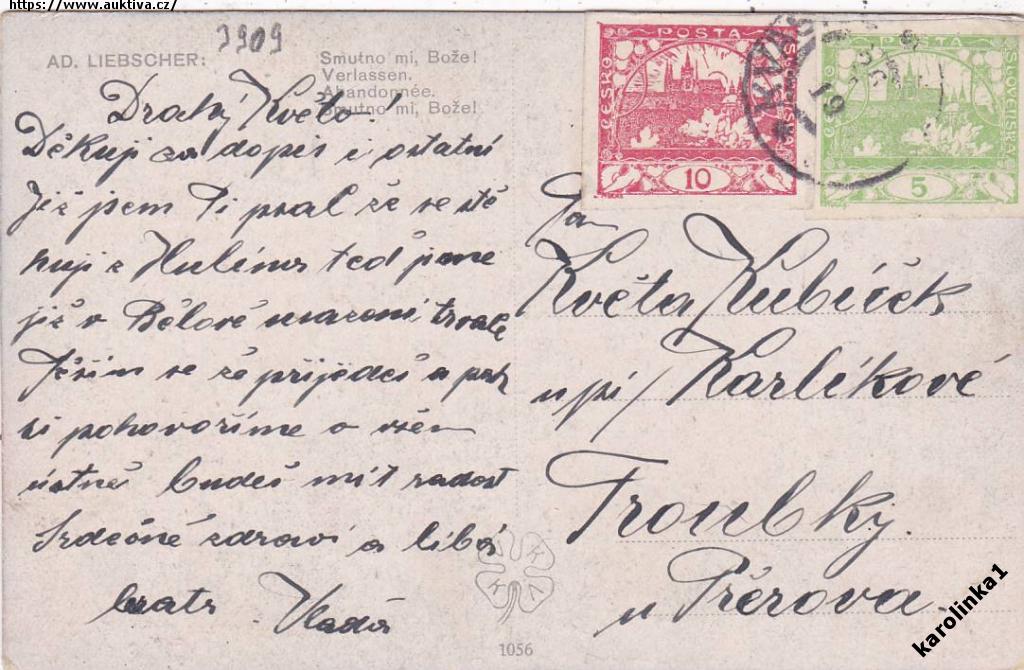 https://www.auktiva.cz/
3909
AD. LIEBSCHER:
Smutno mi, Bože!
Verlassen.
Abandonnée.
Smutno mi, Bože!
Drahý Květo!
Děkuji za dopis i ostatní
Již jsem Ti psal že se stě
huji z Hulína teď jsme
již v Bělově usazeni trvale
Těším se že přijedeš a pak
si pohovoříme o všem
ústně budeš mít radost
Srdečně zdraví a líbá
bratr Vláďa
POSTA
ČESKO
SLOVENSKÁ
10
POSTA
ČESKO
SLOVENSKÁ
5
19
Pan
Květa Kubíček
u pí/ Karlíkové
Troubky
u Přerova.
K
V
K
V
1056
karolinka1